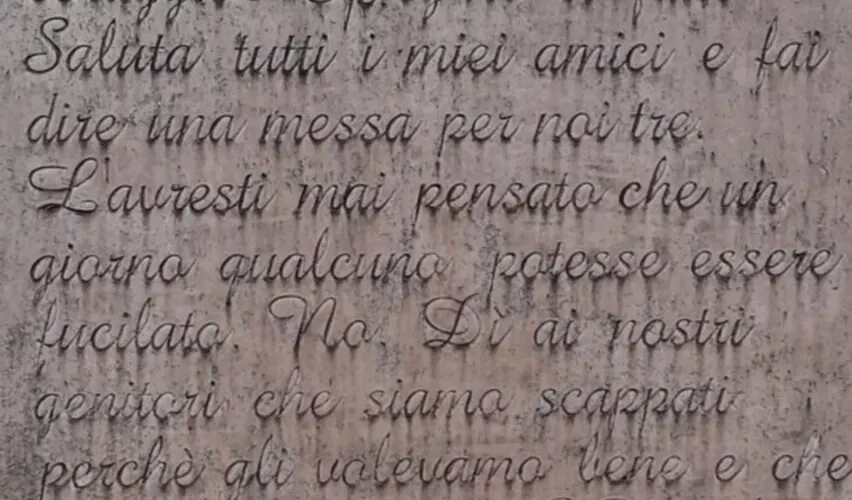 Saluta tutti i miei amici e fai
dire una messa per noi tre.
L'avresti mai pensato che un
giorno qualcuno potesse essere
fucilato. No. Dì ai nostri
genitori che siamo scappati
perchè gli volevamo bene e che